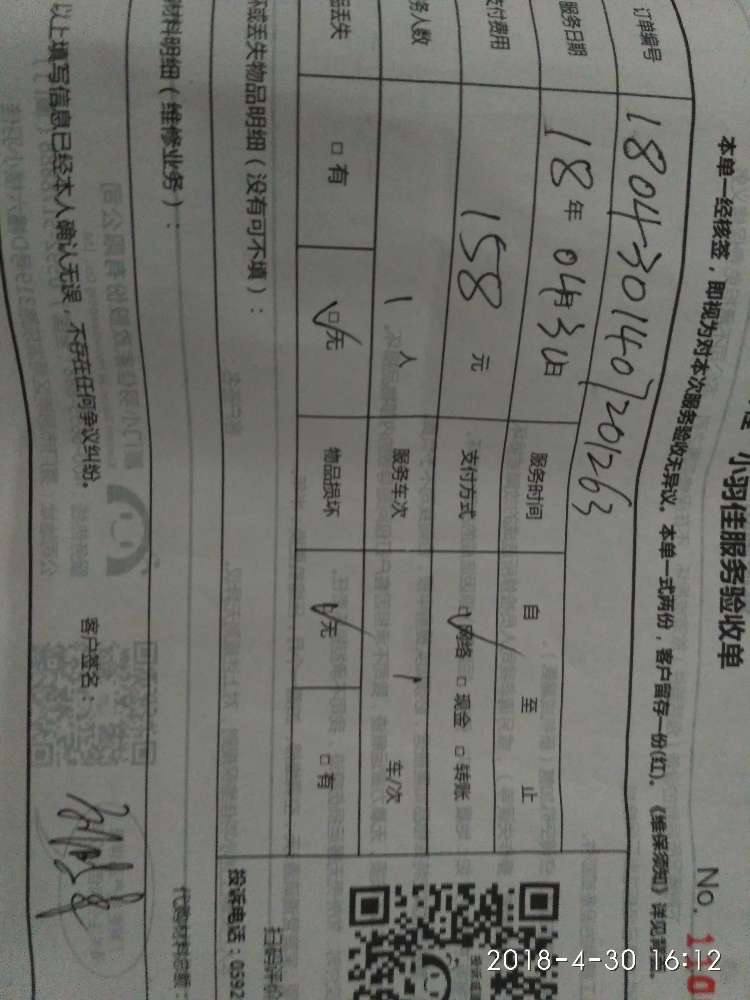 小羽佳服务验收单
No. 110
本单一经核签，即视为对本次服务验收无异议。本单一式两份，客户留存一份(红)。《维保须知》详见
订单编号 180430140720 1263
服务日期 18年 04月30日 服务时间 自 至 止
支付费用 158 元 支付方式 ☑网络 □现金 □转账
务人数 1 人 服务车次 1 车/次
品丢失 □有 ☑无 物品损坏 ☑无 □有
坏或丢失物品明细（没有可不填）：
材料明细（维修业务）：
代购材料总额：
投诉电话：0592
以上填写信息已经本人确认无误，不存在任何争议纠纷。 客户签名：
2018-4-30 16:12